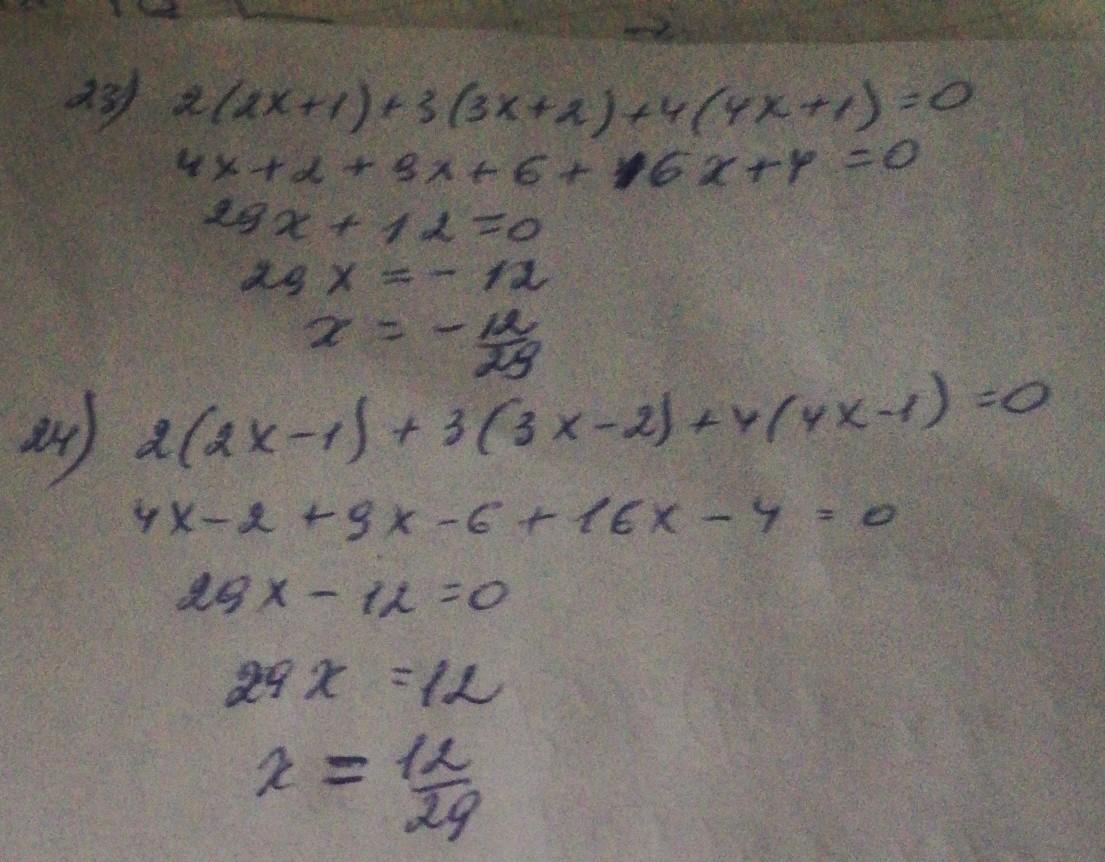 23) 2(2x+1)+3(3x+2)+4(4x+1)=0
4x+2+9x+6+16x+4=0
29x+12=0
29x=-12
x=-12/29
24) 2(2x-1)+3(3x-2)+4(4x-1)=0
4x-2+9x-6+16x-4=0
29x-12=0
29x=12
x=12/29